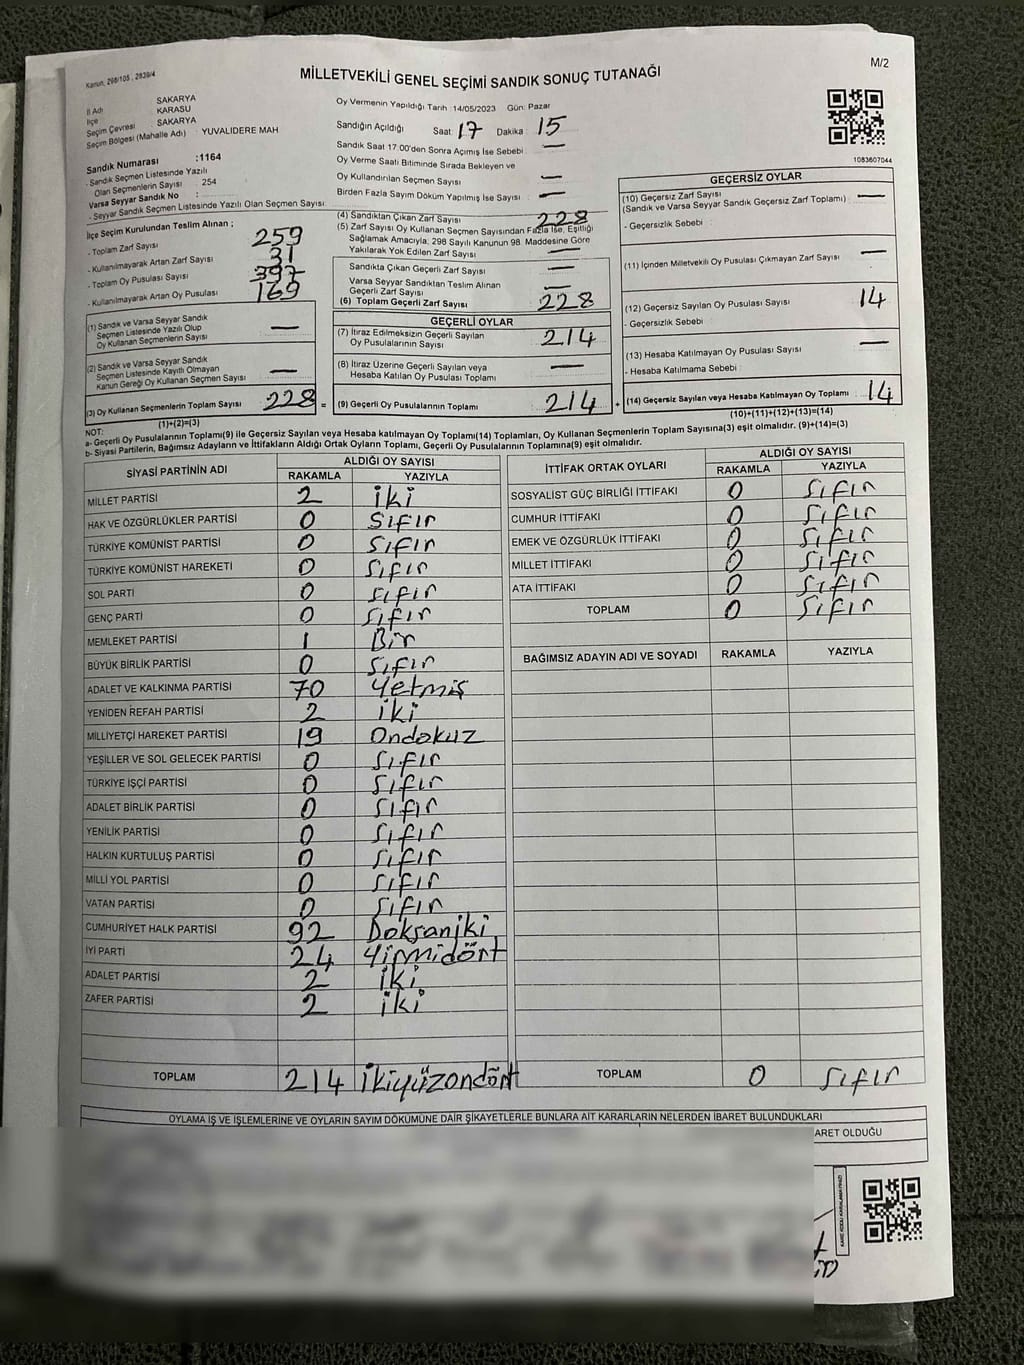 Kanun, 298/105 , 2839/4
MİLLETVEKİLİ GENEL SEÇİMİ SANDIK SONUÇ TUTANAĞI
M/2
İl Adı SAKARYA
İlçe KARASU
Seçim Çevresi SAKARYA
Seçim Bölgesi (Mahalle Adı) : YUVALIDERE MAH
Sandık Numarası :1164
- Sandık Seçmen Listesinde Yazılı
Olan Seçmenlerin Sayısı : 254
Varsa Seyyar Sandık No :
- Seyyar Sandık Seçmen Listesinde Yazılı Olan Seçmen Sayısı:
Oy Vermenin Yapıldığı Tarih :14/05/2023 Gün: Pazar
Sandığın Açıldığı Saat 17 Dakika 15
Sandık Saat 17.00'den Sonra Açımış İse Sebebi : —
Oy Verme Saati Bitiminde Sırada Bekleyen ve
Oy Kullandırılan Seçmen Sayısı : —
Birden Fazla Sayım Döküm Yapılmış İse Sayısı : —
1083607044
İlçe Seçim Kurulundan Teslim Alınan ;
- Toplam Zarf Sayısı 259
- Kullanılmayarak Artan Zarf Sayısı 31
- Toplam Oy Pusulası Sayısı 397
- Kullanılmayarak Artan Oy Pusulası 169
(1) Sandık ve Varsa Seyyar Sandık
Seçmen Listesinde Yazılı Olup
Oy Kullanan Seçmenlerin Sayısı —
(2) Sandık ve Varsa Seyyar Sandık
Seçmen Listesinde Kayıtlı Olmayan
Kanun Gereği Oy Kullanan Seçmen Sayısı —
(3) Oy Kullanan Seçmenlerin Toplam Sayısı 228 =
(1)+(2)=(3)
(4) Sandıktan Çıkan Zarf Sayısı 228
(5) Zarf Sayısı Oy Kullanan Seçmen Sayısından Fazla İse, Eşitliği
Sağlamak Amacıyla; 298 Sayılı Kanunun 98. Maddesine Göre
Yakılarak Yok Edilen Zarf Sayısı —
Sandıkta Çıkan Geçerli Zarf Sayısı —
Varsa Seyyar Sandıktan Teslim Alınan
Geçerli Zarf Sayısı —
(6) Toplam Geçerli Zarf Sayısı 228
GEÇERLİ OYLAR
(7) İtiraz Edilmeksizin Geçerli Sayılan
Oy Pusulalarının Sayısı 214
(8) İtiraz Üzerine Geçerli Sayılan veya
Hesaba Katılan Oy Pusulası Toplamı —
(9) Geçerli Oy Pusulalarının Toplamı 214 +
GEÇERSİZ OYLAR
(10) Geçersiz Zarf Sayısı
(Sandık ve Varsa Seyyar Sandık Geçersiz Zarf Toplamı) : —
- Geçersizlik Sebebi :
(11) İçinden Milletvekili Oy Pusulası Çıkmayan Zarf Sayısı —
(12) Geçersiz Sayılan Oy Pusulası Sayısı 14
- Geçersizlik Sebebi
(13) Hesaba Katılmayan Oy Pusulası Sayısı —
- Hesaba Katılmama Sebebi
(14) Geçersiz Sayılan veya Hesaba Katılmayan Oy Toplamı 14
(10)+(11)+(12)+(13)=(14)
NOT:
a- Geçerli Oy Pusulalarının Toplamı(9) ile Geçersiz Sayılan veya Hesaba Katılmayan Oy Toplamı(14) Toplamları, Oy Kullanan Seçmenlerin Toplam Sayısına(3) eşit olmalıdır. (9)+(14)=(3)
b- Siyasi Partilerin, Bağımsız Adayların ve İttifakların Aldığı Oyların Toplamı, Geçerli Oy Pusulalarının Toplamına(9) eşit olmalıdır.
SİYASİ PARTİNİN ADI ALDIĞI OY SAYISI
RAKAMLA YAZIYLA
MİLLET PARTİSİ 2 iki
HAK VE ÖZGÜRLÜKLER PARTİSİ 0 Sıfır
TÜRKİYE KOMÜNİST PARTİSİ 0 Sıfır
TÜRKİYE KOMÜNİST HAREKETİ 0 Sıfır
SOL PARTİ 0 Sıfır
GENÇ PARTİ 0 Sıfır
MEMLEKET PARTİSİ 1 Bir
BÜYÜK BİRLİK PARTİSİ 0 Sıfır
ADALET VE KALKINMA PARTİSİ 70 Yetmiş
YENİDEN REFAH PARTİSİ 2 iki
MİLLİYETÇİ HAREKET PARTİSİ 19 Ondokuz
YEŞİLLER VE SOL GELECEK PARTİSİ 0 Sıfır
TÜRKİYE İŞÇİ PARTİSİ 0 Sıfır
ADALET BİRLİK PARTİSİ 0 Sıfır
YENİLİK PARTİSİ 0 Sıfır
HALKIN KURTULUŞ PARTİSİ 0 Sıfır
MİLLİ YOL PARTİSİ 0 Sıfır
VATAN PARTİSİ 0 Sıfır
CUMHURİYET HALK PARTİSİ 92 Doksaniki
İYİ PARTİ 24 Yirmidört
ADALET PARTİSİ 2 iki
ZAFER PARTİSİ 2 iki
TOPLAM 214 ikiyüzondört
İTTİFAK ORTAK OYLARI ALDIĞI OY SAYISI
RAKAMLA YAZIYLA
SOSYALİST GÜÇ BİRLİĞİ İTTİFAKI 0 Sıfır
CUMHUR İTTİFAKI 0 Sıfır
EMEK VE ÖZGÜRLÜK İTTİFAKI 0 Sıfır
MİLLET İTTİFAKI 0 Sıfır
ATA İTTİFAKI 0 Sıfır
TOPLAM 0 Sıfır
BAĞIMSIZ ADAYIN ADI VE SOYADI RAKAMLA YAZIYLA
TOPLAM 0 Sıfır
OYLAMA İŞ VE İŞLEMLERİNE VE OYLARIN SAYIM DÖKÜMÜNE DAİR ŞİKAYETLERLE BUNLARA AİT KARARLARIN NELERDEN İBARET BULUNDUKLARI
ARET OLDUĞU